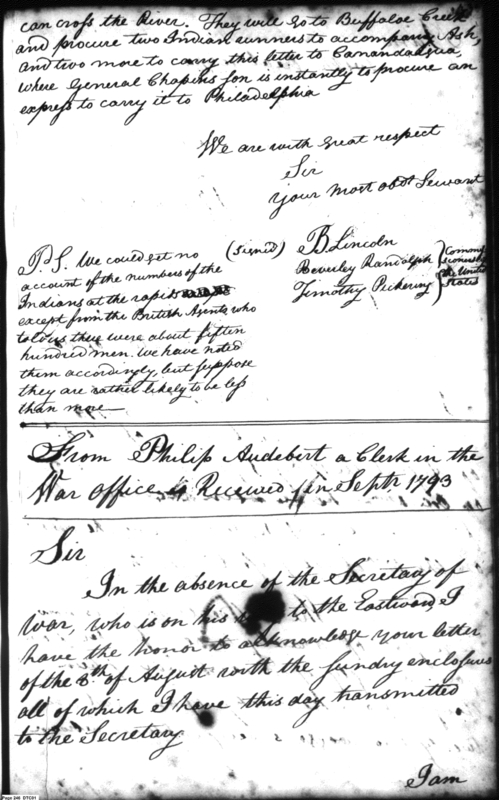 can cross the River. They will go to Buffaloe Creek
and procure two Indian runners to accompany Ash,
and two more to carry this letter to Canandaigua,
where General Chapins son is instantly to procure an
express to carry it to Philadelphia
We are with great respect
Sir
your most obdt Servant
(signed) B Lincoln
Beverley Randolph
Timothy Pickering
Commis
sioners of
the United
States
P.S. We could get no
account of the numbers of the
Indians at the rapids
except from the British Agents who
told us they were about fifteen
hundred men. We have noted
them accordingly, but suppose
they are rather likely to be less
than more
From Philip Audebert a Clerk in the
War Office is Received in Septr 1793
Sir
In the absence of the Secretary of
War, who is on his to the Eastward, I
have the honor to acknowledge your letter
of the 8th of August with the sundry enclosures
all of which I have this day transmitted
to the Secretary
I am
Page 246 DTC01